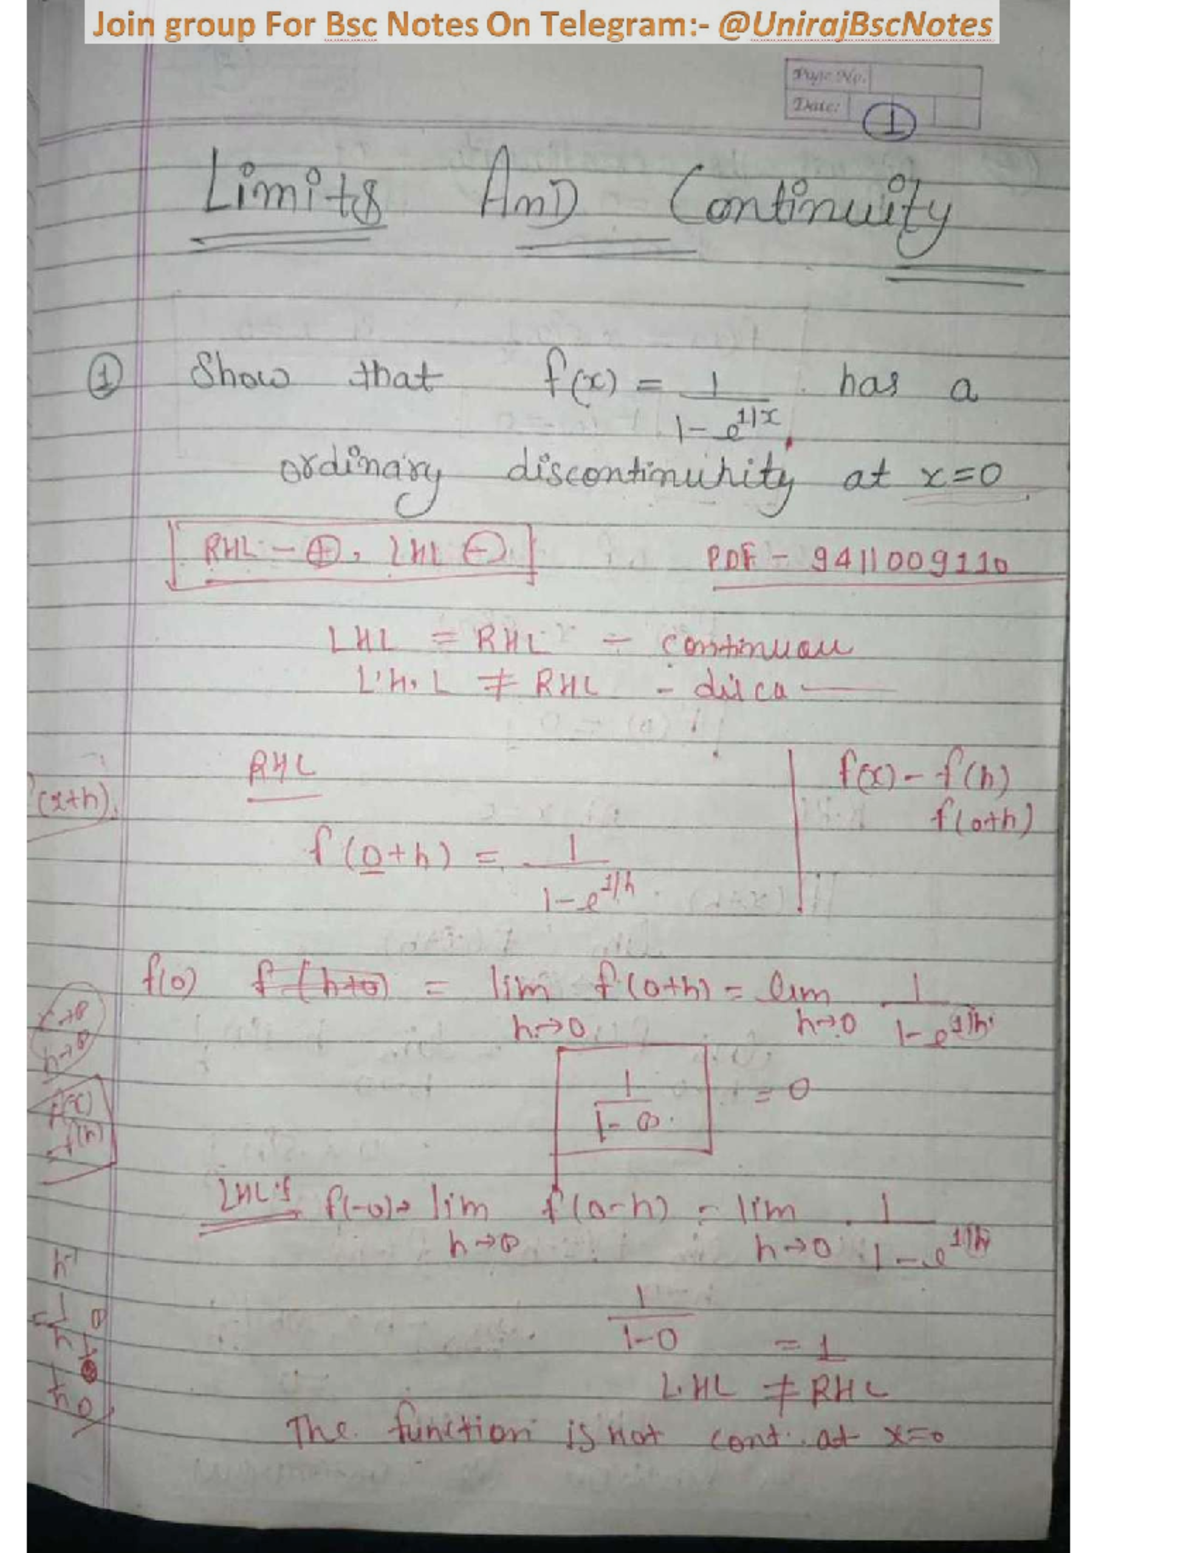 Join group For Bsc Notes On Telegram:- @UnirajBscNotes
Page No.
Date: 1
Limits AnD Continuity
① Show that f(x) = 1/(1-e^1/x) has a
ordinary discontinuhity at x=0
RHL - ⊕, LHL ⊖ PDF - 9411009110
LHL = RHL - continuau
L.H.L ≠ RHL - disca
RHL f(x) - f(h)
(x+h) f(0+h)
f(0+h) = 1/(1-e^1/h)
f(0) f(h+0) = lim h→0 f(0+h) = lim h→0 1/(1-e^1/h)
1/(1-∞) = 0
f(x)
f(h)
LHL f(-0) = lim h→0 f(0-h) = lim h→0 1/(1-e^1/h)
1/(1-0) = 1
L.HL ≠ RHL
The function is not cont. at x=0